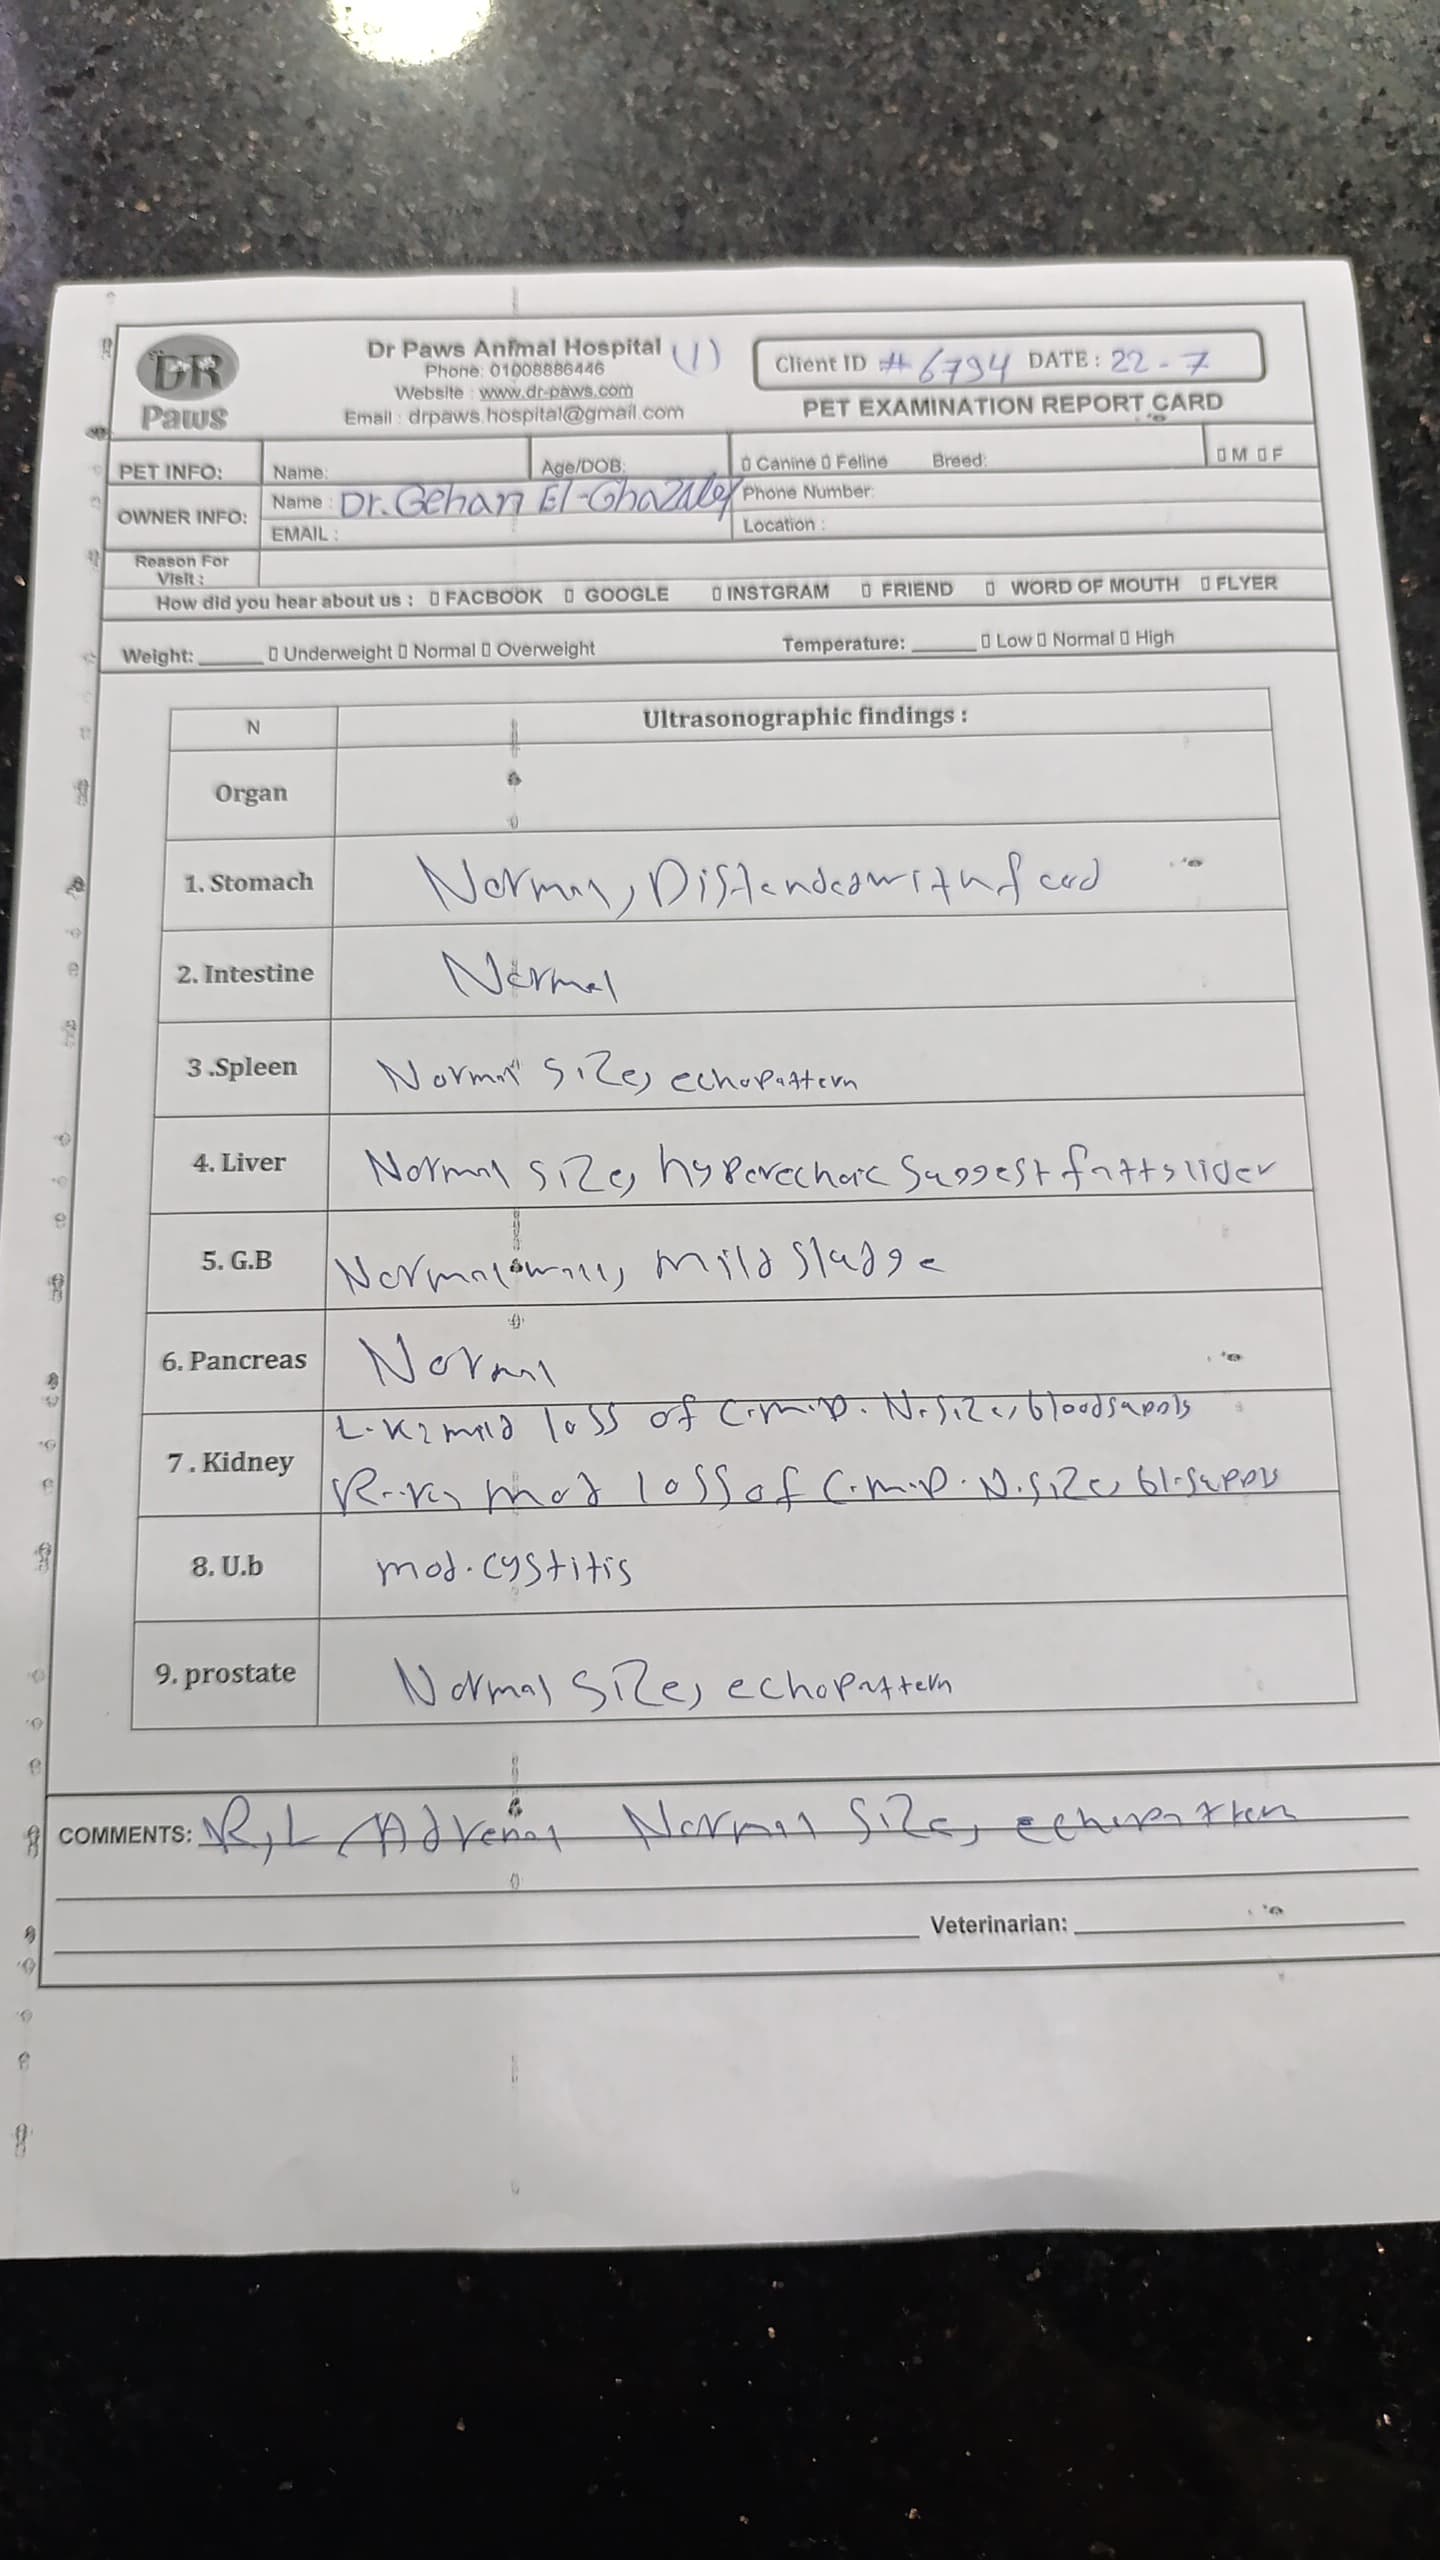 DR
Paws
Dr Paws Animal Hospital (1)
Phone: 01008886446
Website : www.dr-paws.com
Email : drpaws.hospital@gmail.com
Client ID #6794 DATE : 22-7
PET EXAMINATION REPORT CARD
PET INFO: Name: Age/DOB: Canine Feline Breed: M F
OWNER INFO: Name : Dr. Gehan El-Ghazaley Phone Number:
EMAIL : Location :
Reason For
Visit :
How did you hear about us : FACBOOK GOOGLE INSTGRAM FRIEND WORD OF MOUTH FLYER
Weight: Underweight Normal Overweight Temperature: Low Normal High
N Ultrasonographic findings :
Organ
1. Stomach Normal, Distended with food
2. Intestine Normal
3 .Spleen Normal size, echopattern
4. Liver Normal size, hyperechoic suggest fatty liver
5. G.B Normal wall, mild sludge
6. Pancreas Normal
L.K, mild loss of C.M.D. N.size, blood supply
7 . Kidney R.K, mod loss of C.M.D. N.size, bl.supply
8. U.b mod. cystitis
9. prostate Normal size, echopattern
COMMENTS: R, L Adrenal Normal size, echopattern
Veterinarian: